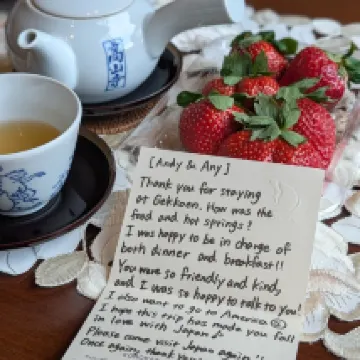 [Andy & Any]
Thank you for staying
at Gekkoen. How was the
food and hot springs?
I was happy to be in charge of
both dinner and breakfast!!
You were so friendly and kind,
and I was so happy to talk to you!
I also want to go to America☺
I hope this trip has made you fall
in love with Japan♪
Please come visit Japan again!!
Once again, thank you